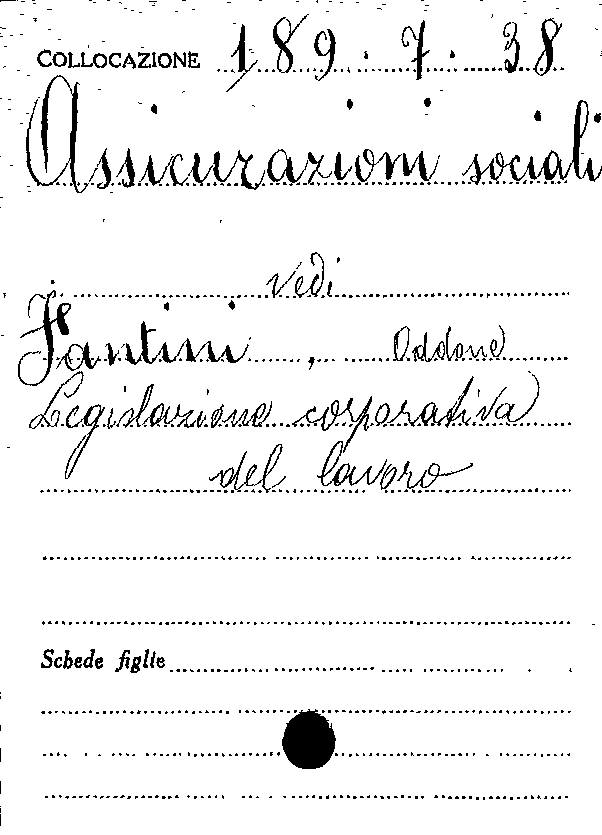 COLLOCAZIONE 189.7.38
Assicurazioni sociali
vedi
Fantini, Oddone
Legislazione corporativa
del lavoro
Schede figlie